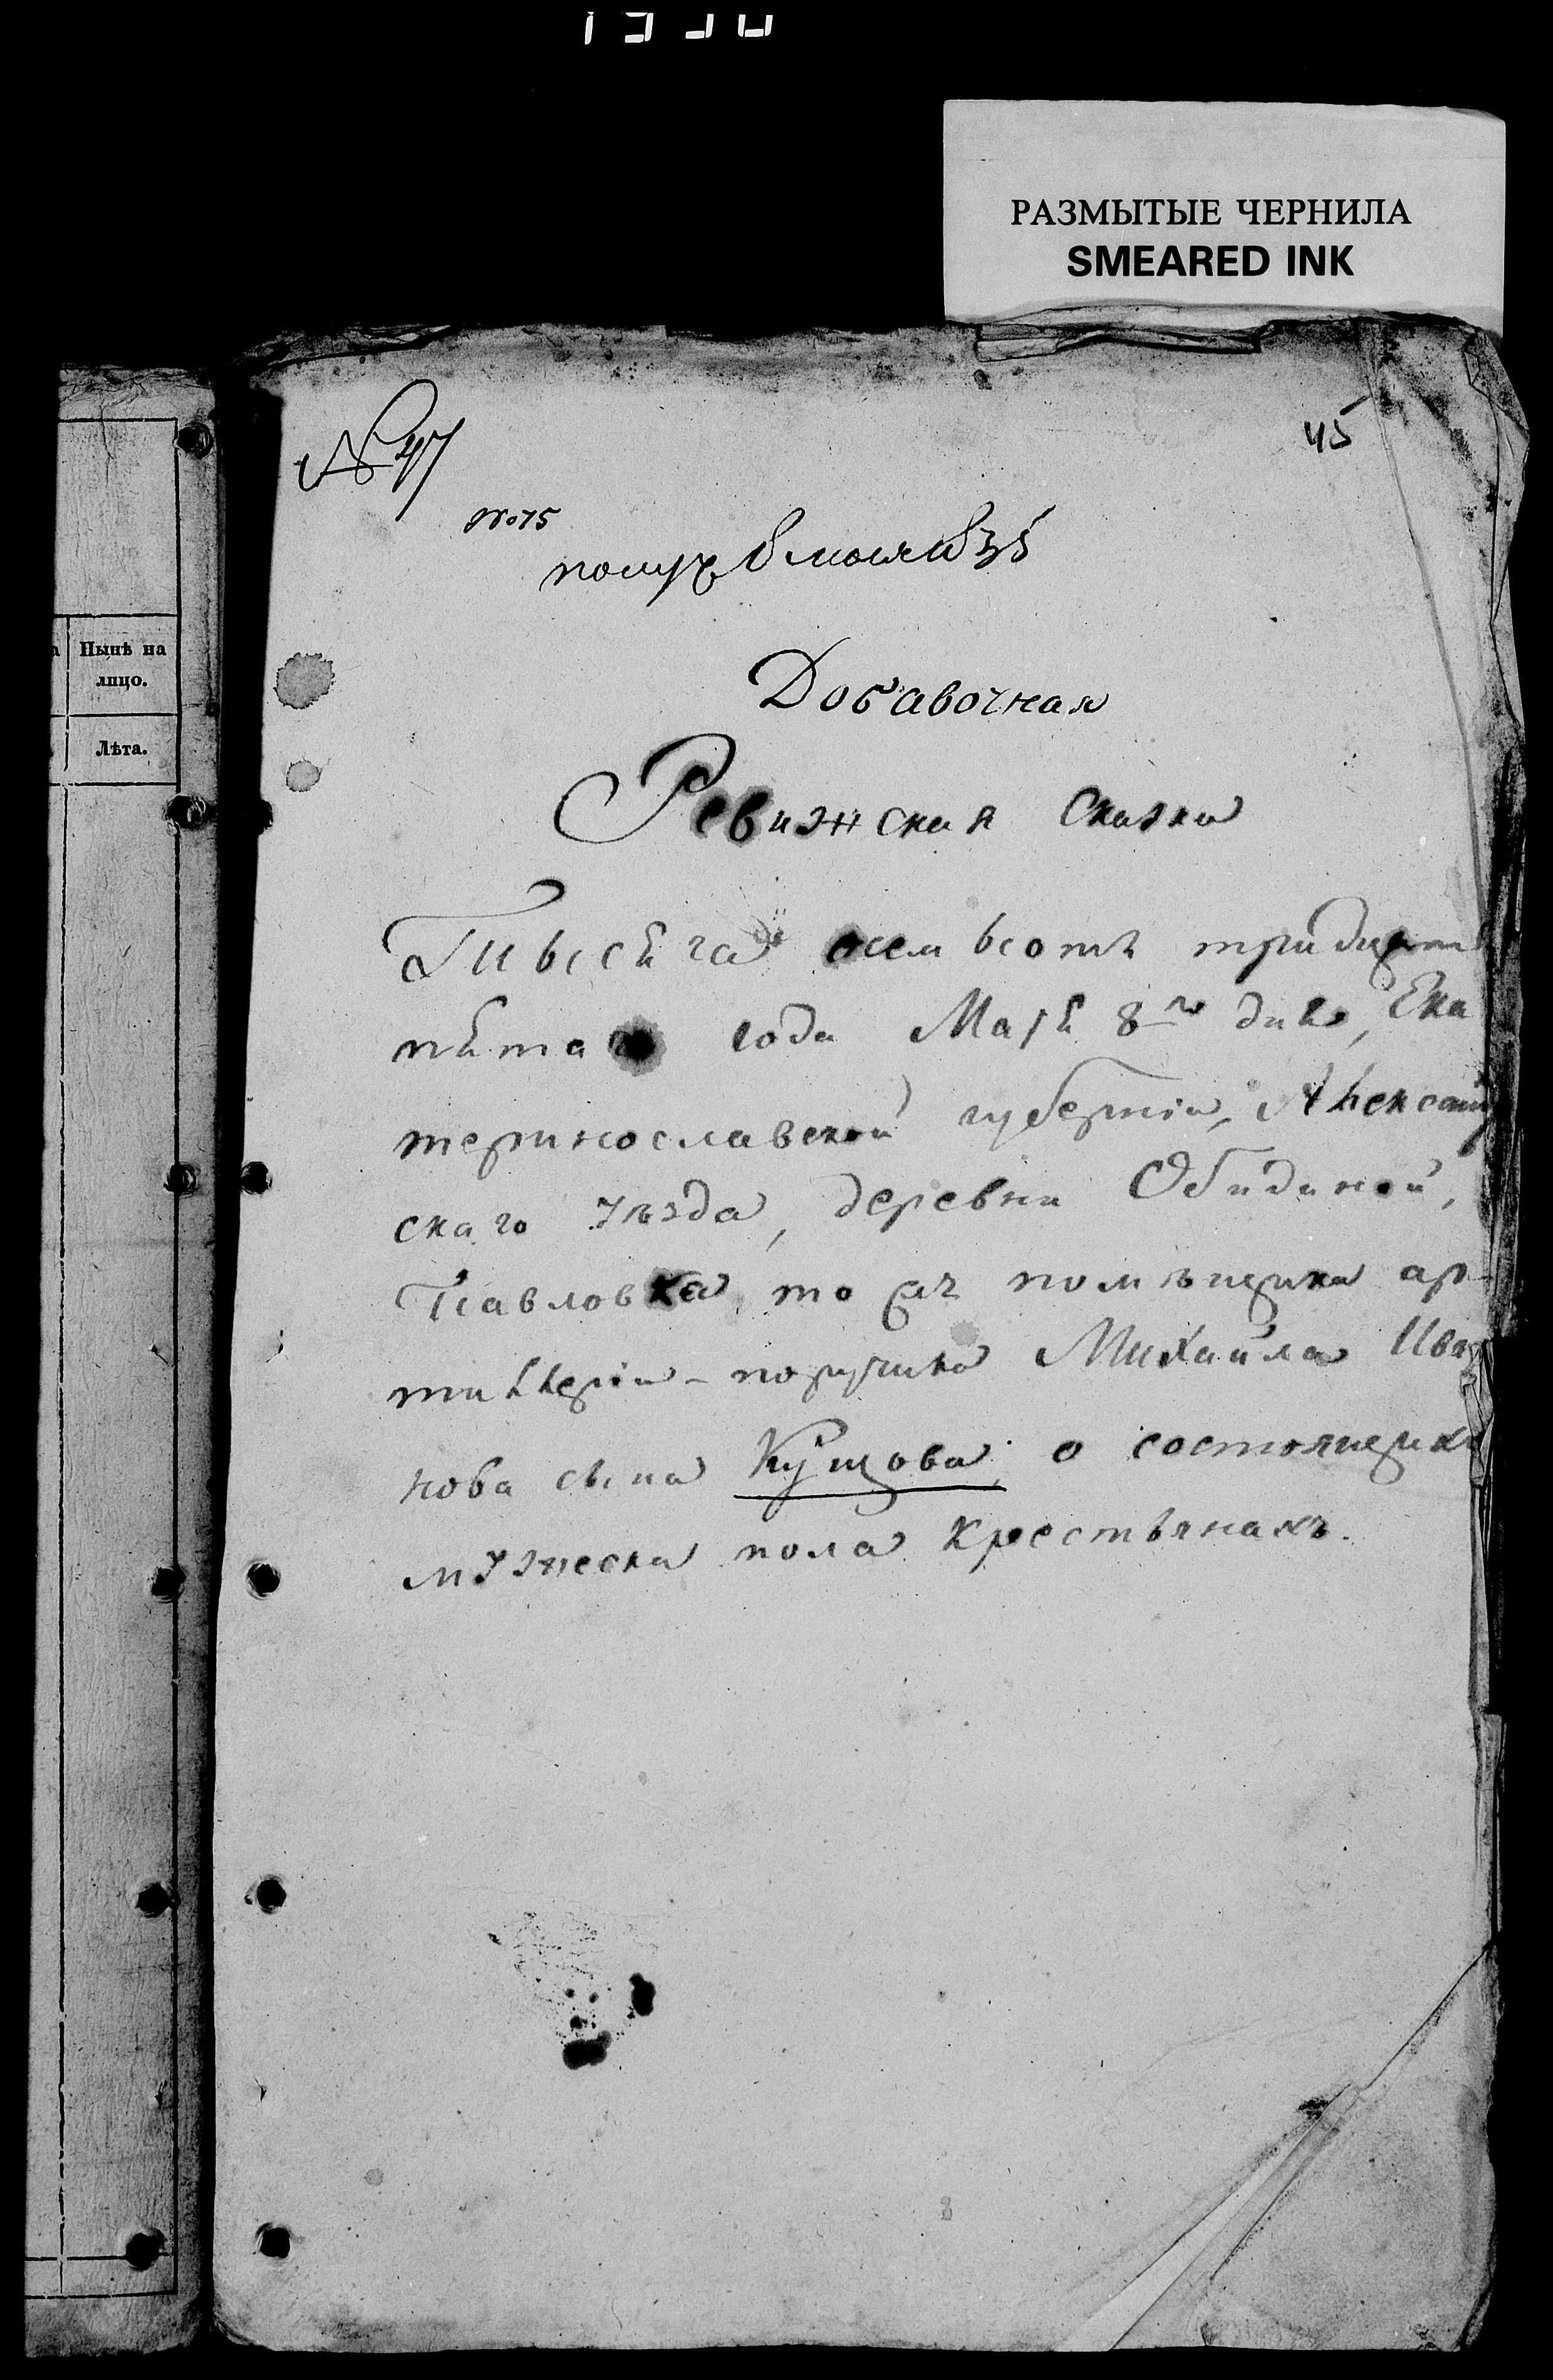 РАЗМЫТЫЕ ЧЕРНИЛА
SMEARED INK
45
№ 47
№ 75
Нынѣ на
лицо.
Лѣта.
Добавочная
Ревижская Сказка
Тысяча осемьсотъ тридцать
пятаго года Маія 8го дня, Ека
теринославской губерніи, Александ
скаго уѣзда, деревни Обидиной,
Павловка тожъ помѣщика ар-
тиллеріи - порутчика Михаила Ива
нова сына Кущова, о состоящихъ
мужеска пола крестьянахъ.